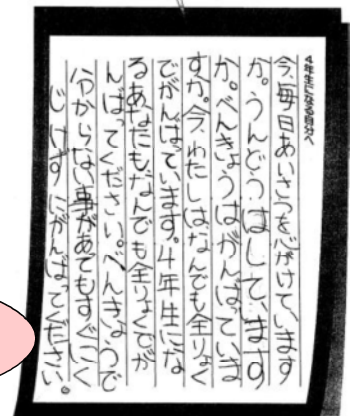 4年生になる自分へ
今、毎日あいさつを心がけています
か。うんどうはしています
か。べんきょうはがんばっていま
すか。今、わたしはなんでも全りょく
でがんばっています。4年生にな
るあなたもなんでも全りょくでが
んばってください。べんきょうで
分からない事があてもすぐにく
じけずにがんばってください。